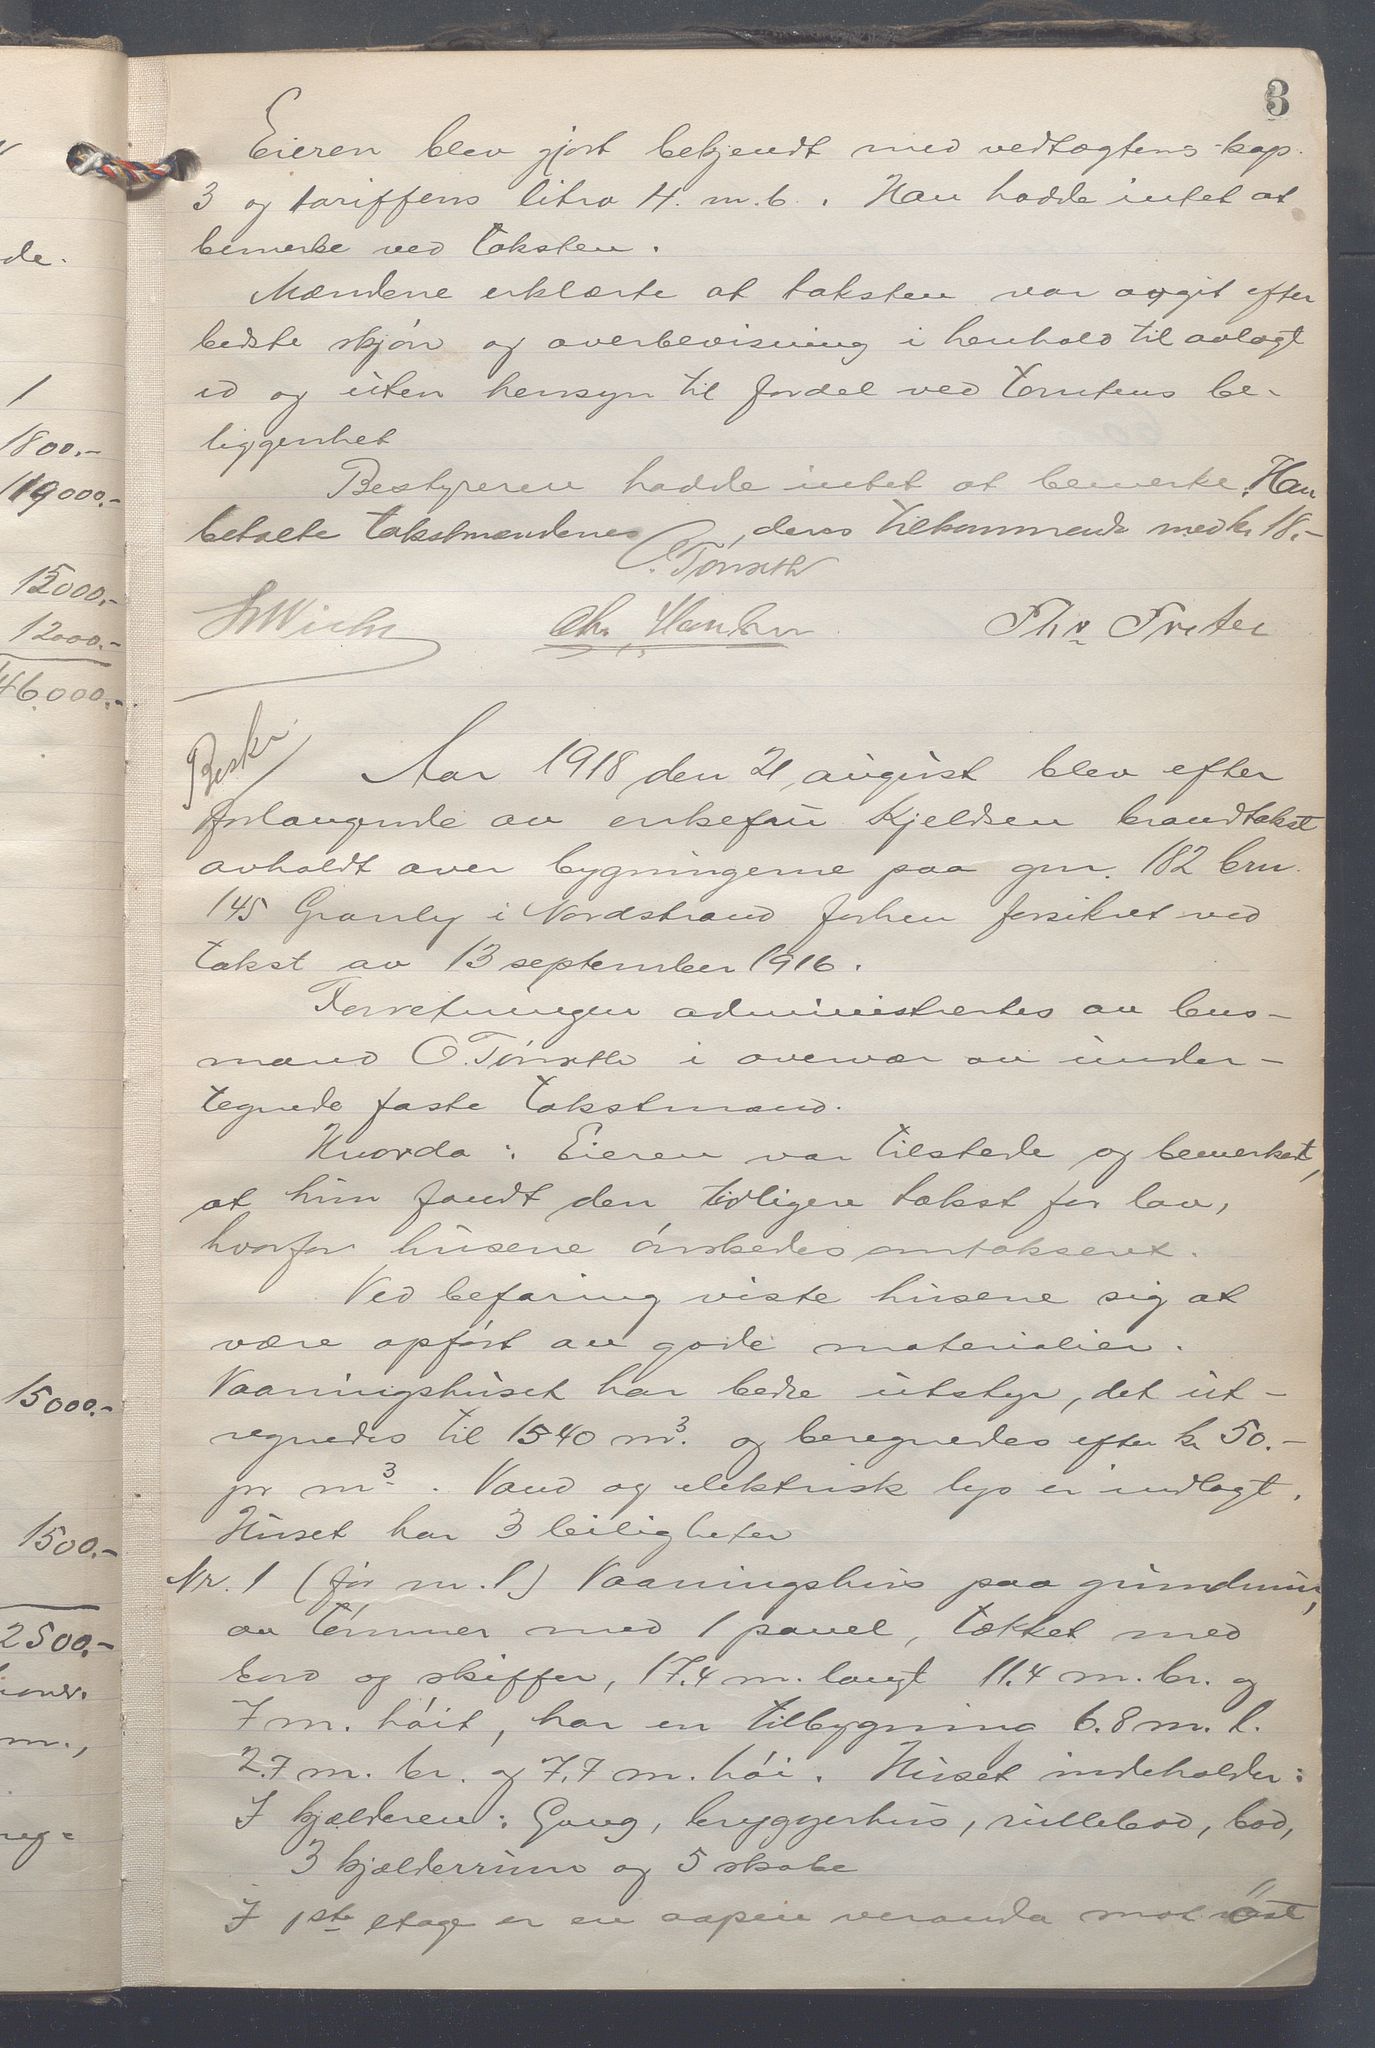 3
Eieren blev gjort bekjendt med vedtægtens kap.
3 og tariffens litra H. m. b. Han hadde intet at
bemerke ved taksten.
Mændene erklærte at taksten var avgit efter
bedste skjön og overbevisning i henhold til avlagt
ed og uten hensyn til fordel ved tomtens be-
liggenhet
Bestyreren hadde intet at bemerke. Han
betalte takstmændenes, deres tilkommende med kr. 18.-
O. Tönseth
Chr.
Beskr.
Aar 1918 den 21 august blev efter
forlangende av enkefru Kjeldsen brandtakst
avholdt over bygningerne paa gnr. 182 brn.
145 Granly i Nordstrand forhen forsikret ved
takst av 13 september 1916.
Forretningen administrertes av lens-
mand O. Tönseth i overvær av under-
tegnede faste takstmænd.
Hvorda: Eieren var tilstede og bemerket,
at hun fandt den tidligere takst for lav,
hvorfor husene önskedes omtakseret.
Ved befaring viste husene sig at
være opfört av gode materialier.
Vaaningshuset har bedre utstyr, det ut-
regnedes til 1540 m³. og beregnedes efter kr 50.-
pr m³. Vand og elektrisk lys er indlagt.
Huset har 3 leiligheter
Nr. 1 (för m. l) Vaaningshus paa grundmur,
av tömmer med 1 panel, tækket med
bord og skiffer, 17.4 m. langt 11.4 m. br. og
7 m. höit, har en tilbygning 6.8 m. l.
2.7 m. br. og 7.7 m. höi. Huset indeholder:
I kjælderen: Gang, bryggerhus, rullebod, bod,
3 kjælderrum og 5 skabe
I 1ste etage er en aapen veranda mot öst
de.
1
1800.-
119000.-
15000.-
12000.-
46.000.-
15000.-
1500.-
2500.-
m.,